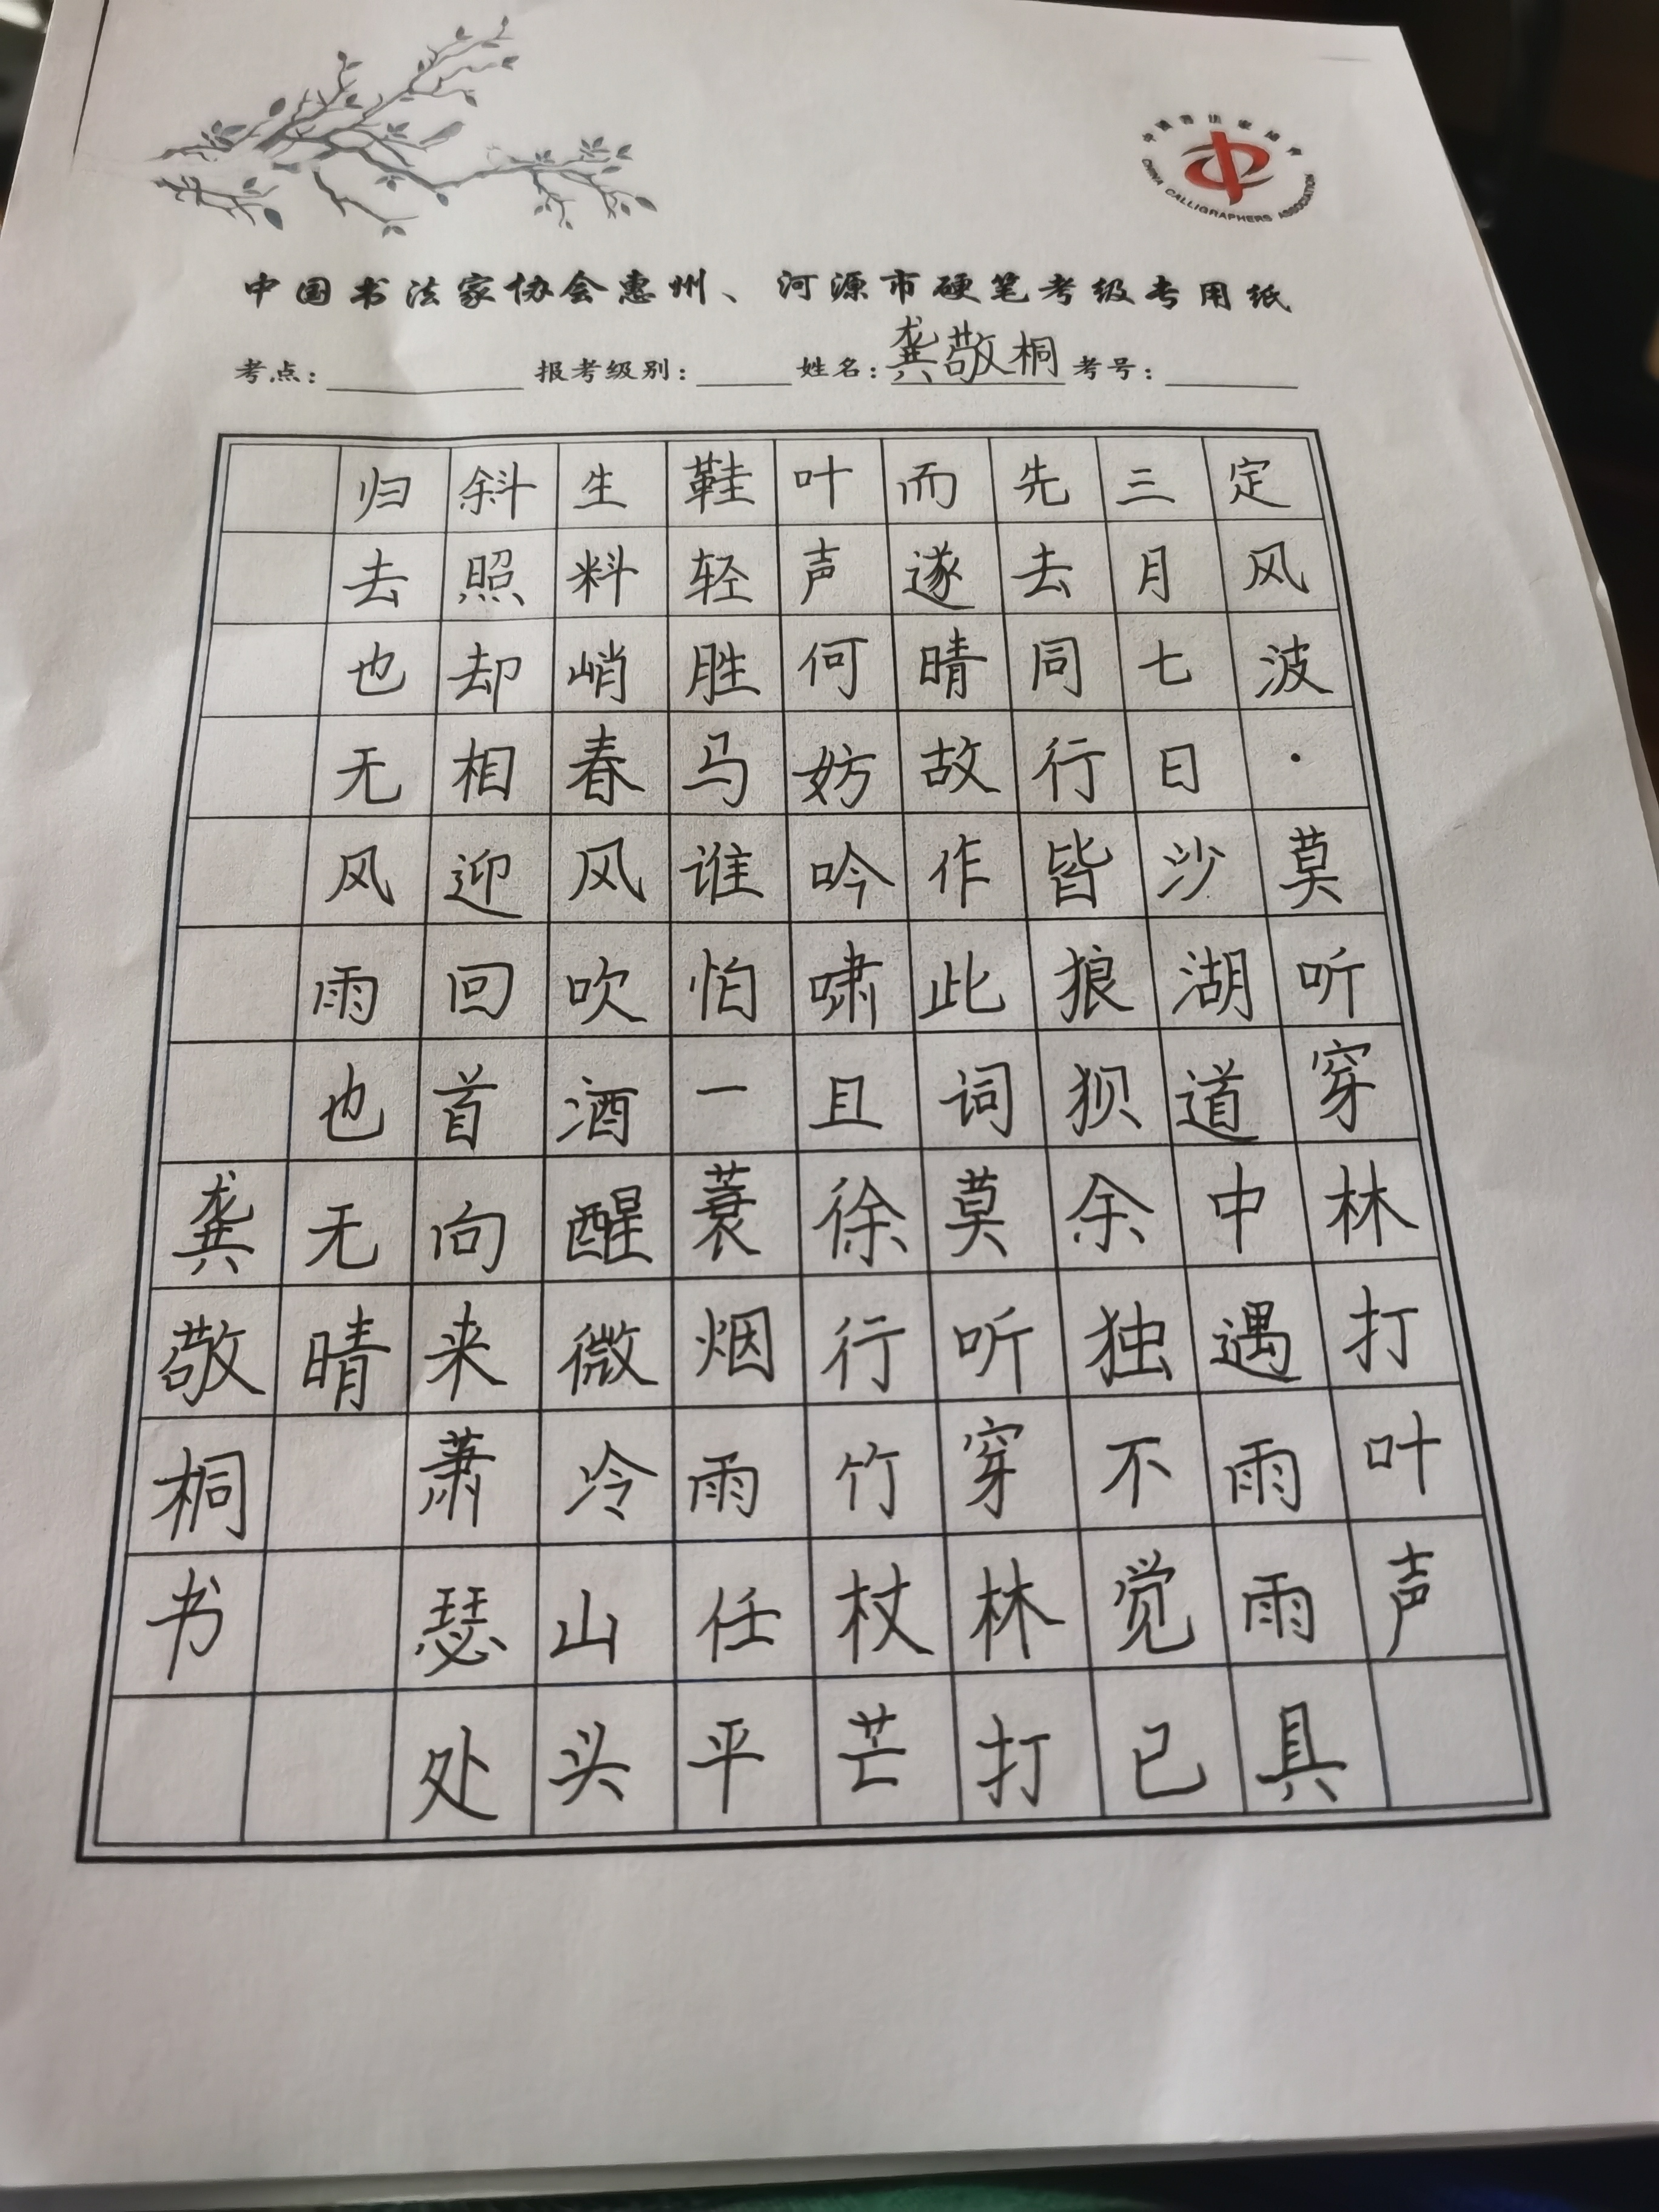 中国书法家协会
CHINA CALLIGRAPHERS ASSOCIATION
中国书法家协会惠州、河源市硬笔考级专用纸
考点: 报考级别: 姓名:龚敬桐 考号:
定风波·莫听穿林打叶声
三月七日沙湖道中遇雨雨具
先去同行皆狼狈余独不觉已
而遂晴故作此词莫听穿林打
叶声何妨吟啸且徐行竹杖芒
鞋轻胜马谁怕一蓑烟雨任平
生料峭春风吹酒醒微冷山头
斜照却相迎回首向来萧瑟处
归去也无风雨也无晴
龚敬桐书